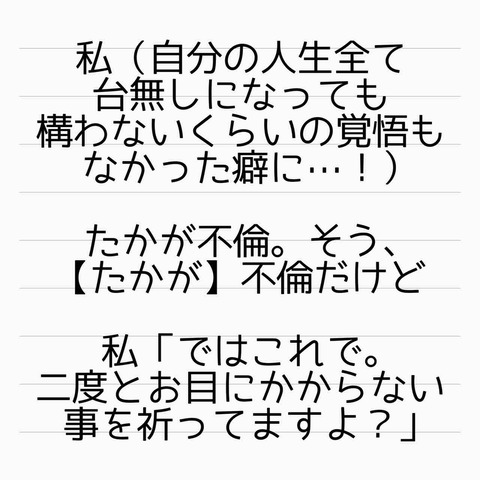 私（自分の人生全て
台無しになっても
構わないくらいの覚悟も
なかった癖に…！）
たかが不倫。そう、
【たかが】不倫だけど
私「ではこれで。
二度とお目にかからない
事を祈ってますよ？」